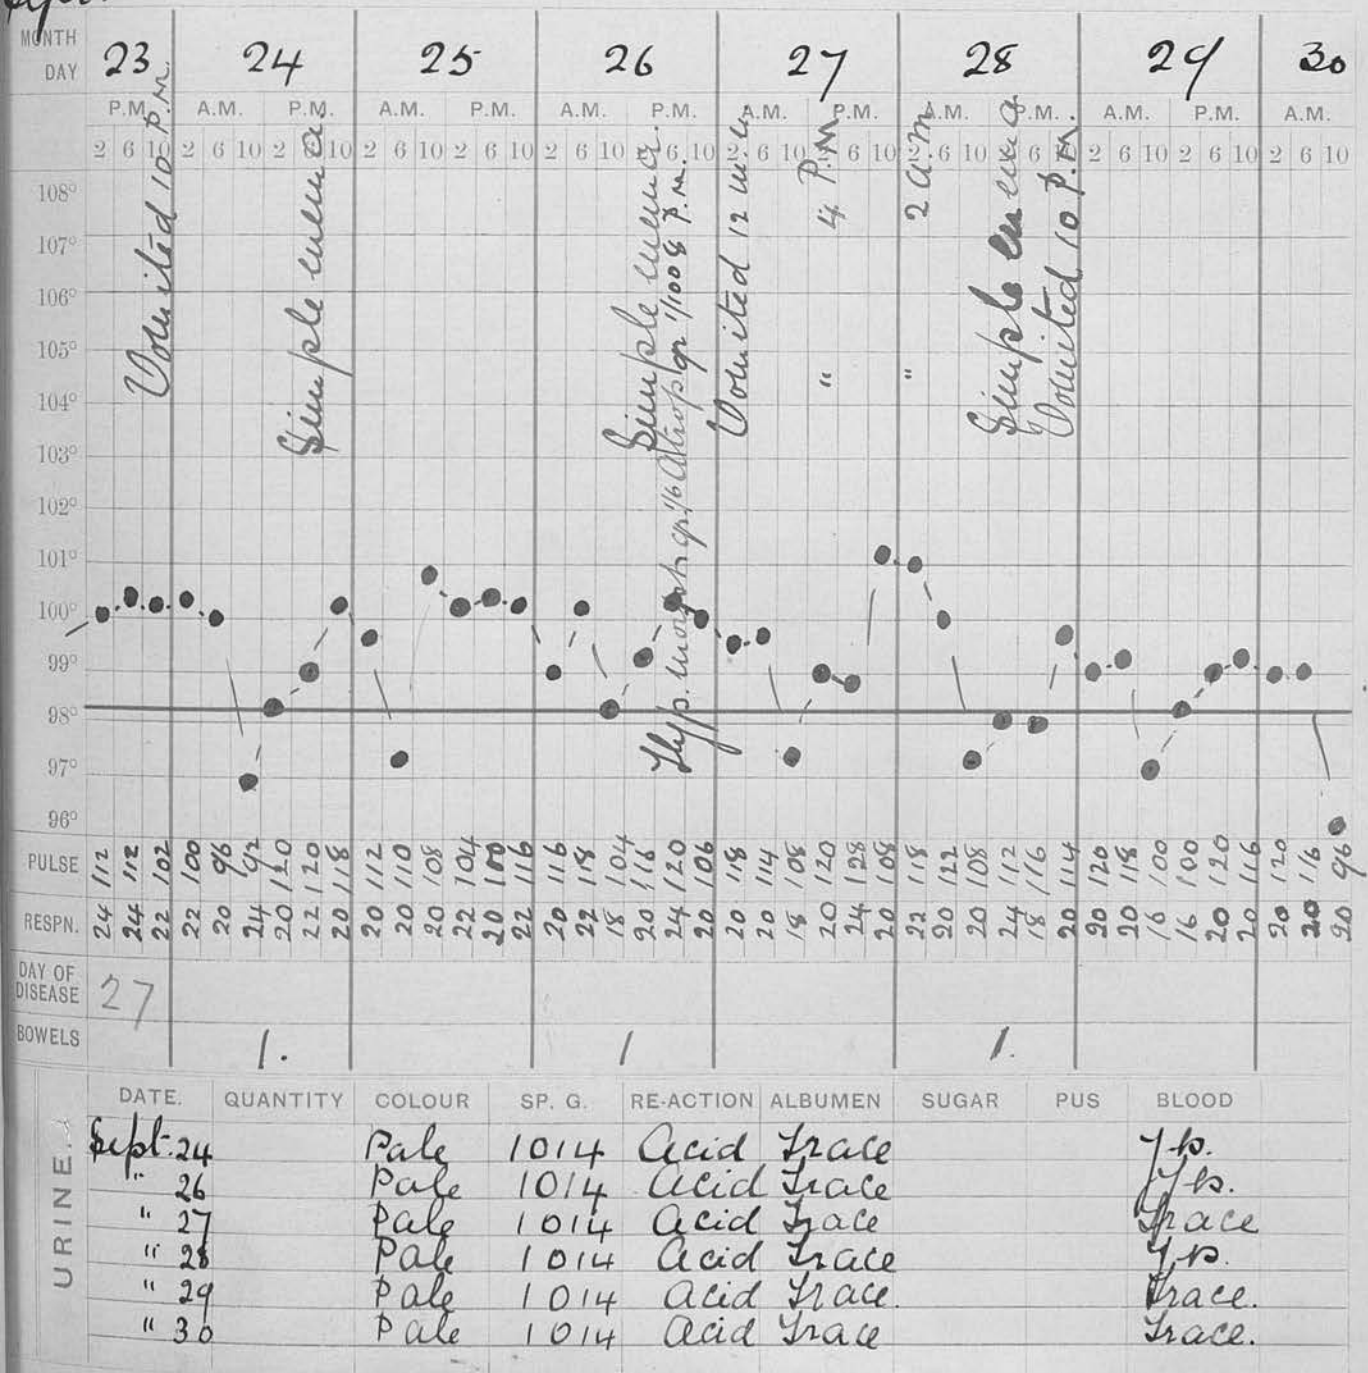 MONTH
DAY 23 24 25 26 27 28 29 30
P.M. A.M. P.M. A.M. P.M. A.M. P.M. A.M. P.M. A.M. P.M. A.M. P.M. A.M.
2 6 10 2 6 10 2 6 10 2 6 10 2 6 10 2 6 10 2 6 10 2 6 10 2 6 10 2 6 10 2 6 10 2 6 10 2 6 10 2 6 10
Vomited 10 P.M.
Simple enema
Simple enema.
Hyp. morph gr. 1/6 Atrop gr 1/100 8 p.m.
Vomited 12 m.n.
" 4 P.M.
" 2 a.m.
Simple enema
Vomited 10 P.M.
108°
107°
106°
105°
104°
103°
102°
101°
100°
99°
98°
97°
96°
PULSE 112 112 102 100 96 92 120 120 118 112 110 108 104 100 116 116 118 104 116 120 106 118 114 108 120 128 108 118 122 108 112 116 114 120 118 100 100 120 116 120 116 96
RESPN. 24 24 22 22 20 24 20 22 20 20 20 20 22 20 22 20 22 18 20 24 20 20 20 18 20 24 20 22 20 20 24 18 20 20 20 16 16 20 20 20 20 20
DAY OF DISEASE 27
BOWELS 1. 1 1.
URINE.
DATE. QUANTITY COLOUR SP. G. RE-ACTION ALBUMEN SUGAR PUS BLOOD
Sept. 24 Pale 1014 Acid Trace
" 26 Pale 1014 Acid Trace
" 27 Pale 1014 Acid Trace Trace
" 28 Pale 1014 Acid Trace
" 29 Pale 1014 Acid Trace. Trace.
" 30 Pale 1014 Acid Trace Trace.